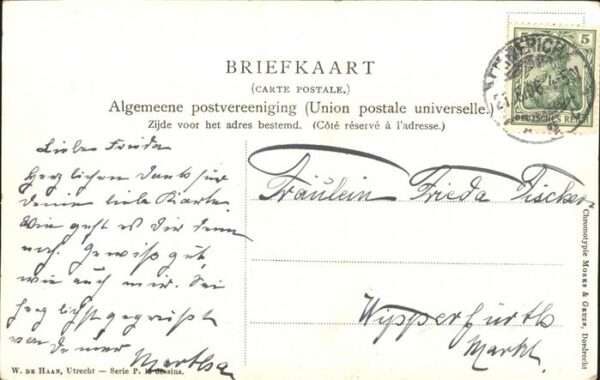 BRIEFKAART
(CARTE POSTALE.)
Algemeene postvereeniging (Union postale universelle.)
Zijde voor het adres bestemd. (Côté réservé à l'adresse.)
5 5
DEUTSCHES REICH
EMMERICH
Liebe Frieda
Herzlichen Dank für
Deine liebe Karte.
Wie geht es Dir denn
noch. Gewiß gut,
wie auch mir. Sei
herzlichst gegrüßt
von Deiner
Martha
Fräulein Frieda Fischer
Wipperfürth
Markt.
W. DE HAAN, Utrecht — Serie P. 12 dessins.
Chromotypie MORKS & GEUZE, Dordrecht